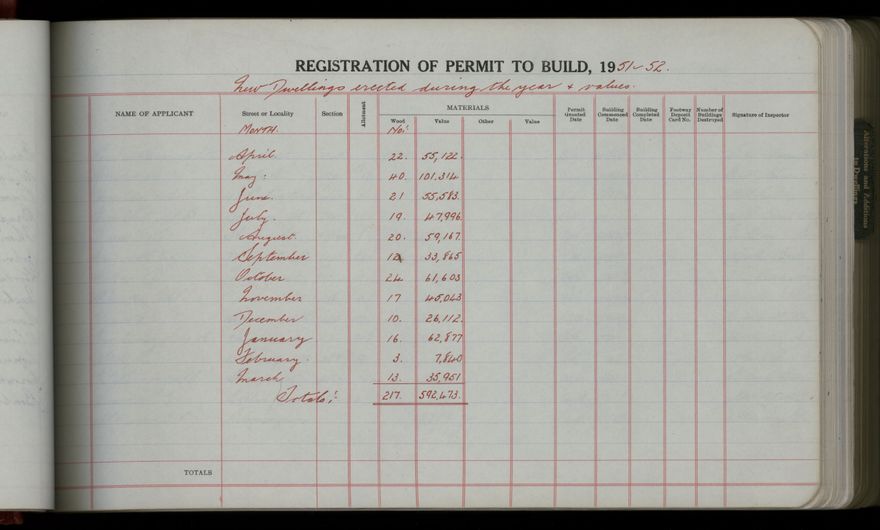 REGISTRATION OF PERMIT TO BUILD, 1951-52.
New Dwellings erected during the year & values.
NAME OF APPLICANT Street or Locality Section Allotment MATERIALS Permit Granted Date Building Commenced Date Building Completed Date Footway Deposit Card No. Number of Buildings Destroyed Signature of Inspector
Wood Value Other Value
Month. No:
April. 22. 55,122.
May: 40. 101,314
June. 21 55,583.
July. 19. 47,996.
August. 20. 59,167.
September 12 33,865
October 24 61,603
November 17 45,043
December 10. 26,112.
January 16. 62,877
February. 3. 7,840
March 13. 35,951
Totals: 217. 592,473.
TOTALS
Alterations and Additions
to Dwellings